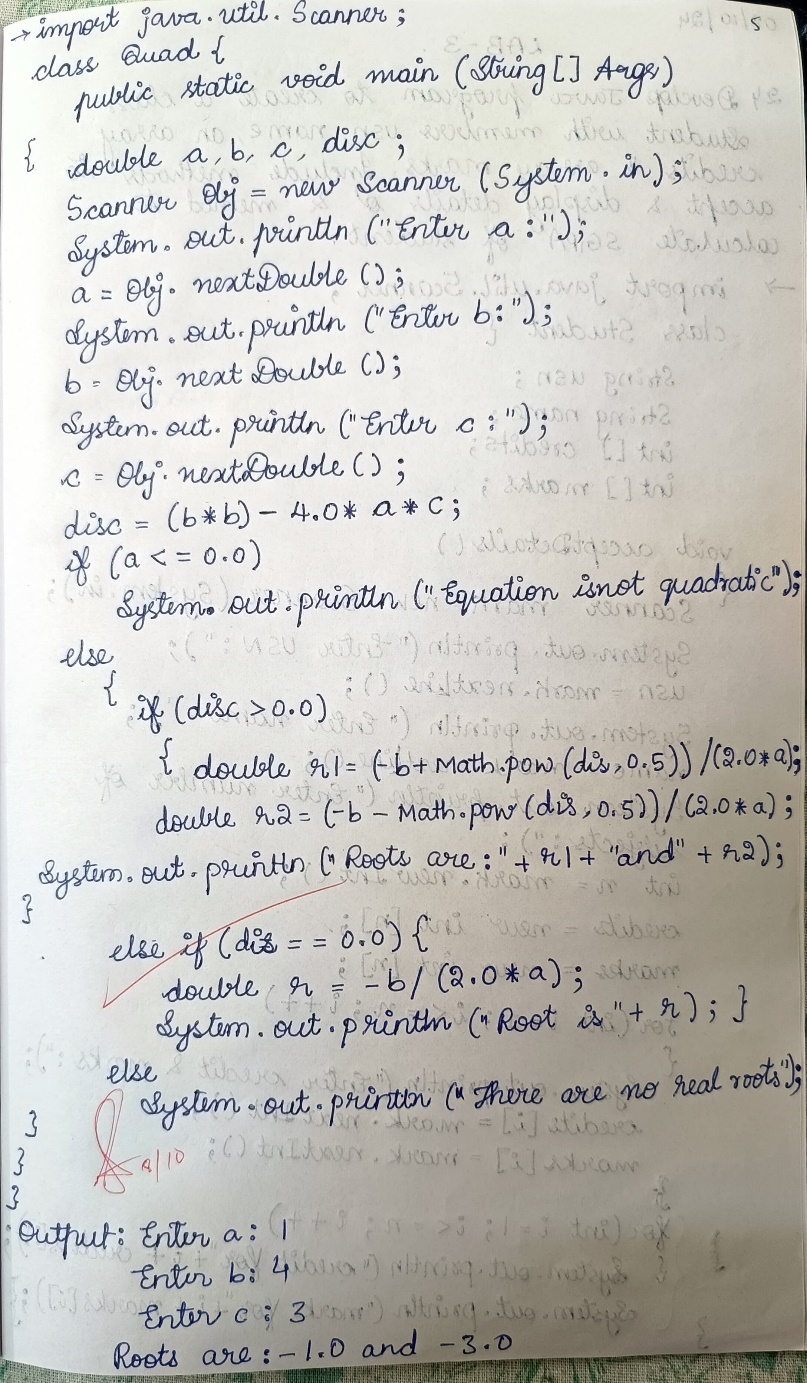 → import java.util.Scanner;
class Quad {
public static void main (String[] Args)
{ double a, b, c, disc;
Scanner Obj = new Scanner (System.in);
System.out.println ("Enter a:");
a = Obj.nextDouble ();
System.out.println ("Enter b:");
b = Obj.nextDouble ();
System.out.println ("Enter c:");
c = Obj.nextDouble ();
disc = (b*b) - 4.0* a*c;
if (a <= 0.0)
System.out.println ("Equation isnot quadratic");
else
{ if (disc > 0.0)
{ double r1 = (-b + Math.pow (dis, 0.5)) / (2.0*a);
double r2 = (-b - Math.pow (dis, 0.5)) / (2.0*a);
System.out.println ("Roots are:" + r1 + "and" + r2);
}
else if (dis == 0.0) {
double r = -b / (2.0*a);
System.out.println ("Root is" + r); }
else
System.out.println ("There are no real roots");
}
}
}
Output: Enter a: 1
Enter b: 4
Enter c: 3
Roots are: -1.0 and -3.0